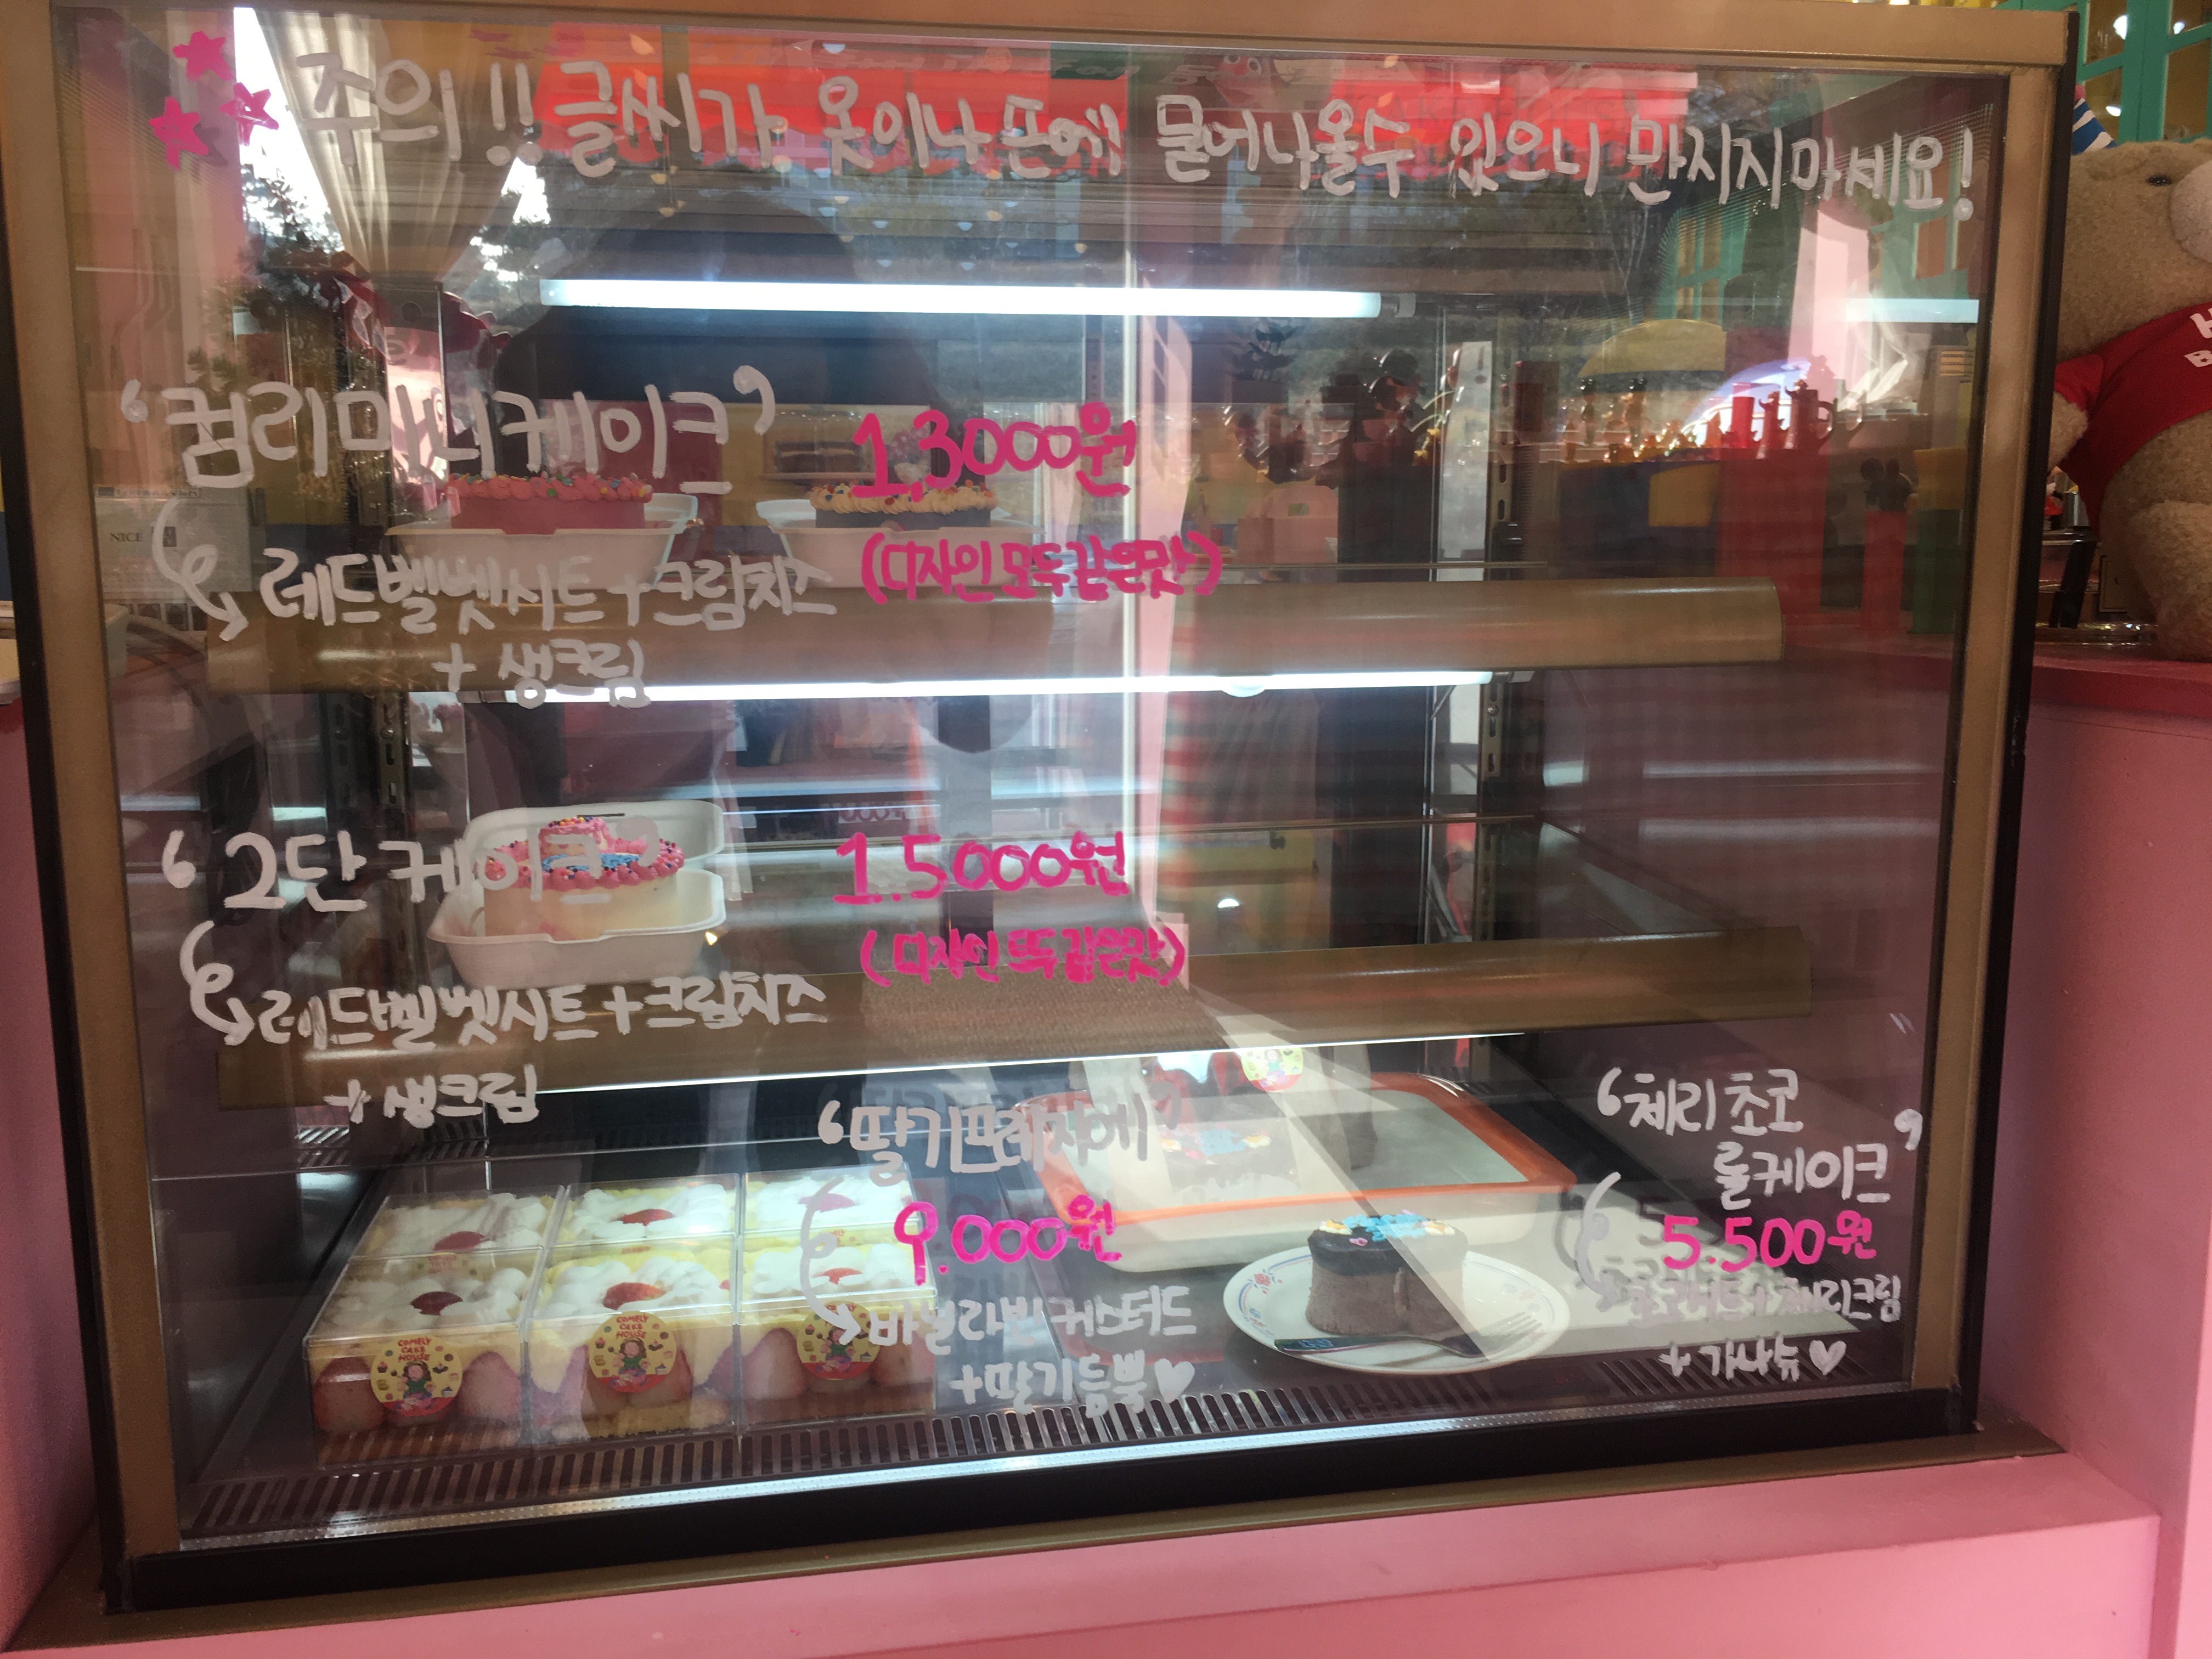 주의!! 글씨가 옷이나 손에 묻어나올수 있으니 만지지마세요!
'컴리미니케이크' 1,3000원
레드벨벳시트+크림치즈 (디자인 모두같은맛)
+ 생크림
'2단케이크' 1.5000원
(디자인 모두같은맛)
레드벨벳시트+크림치즈
+ 생크림
'딸기프레지에'
9.000원
바닐라빈커스터드
+딸기듬뿍♥
'체리초코
롤케이크'
5.500원
+ 가나슈♥
COMELY
CAKE
HOUSE
COMELY
CAKE
HOUSE
NICE